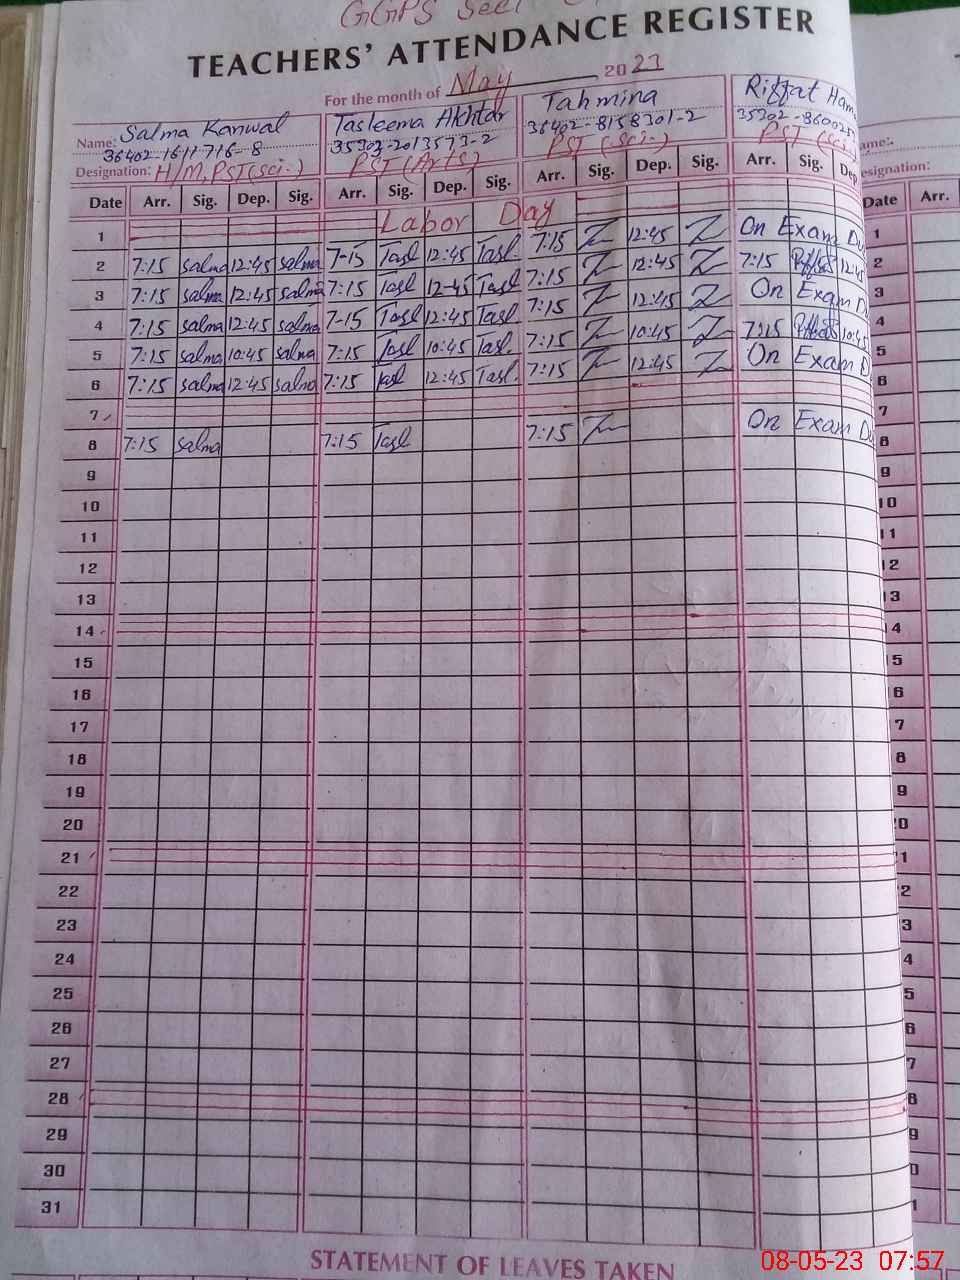 GGPS
TEACHERS' ATTENDANCE REGISTER
For the month of May 2023
Name: Salma Kanwal Tasleema Akhtar Tahmina Riffat
36402-1611716-8 35303-2013573-2 36402-8158301-2 35302-
Designation: H/M, PST(sci.) PST (Arts) PST (sci.) PST (sci.
Date Arr. Sig. Dep. Sig. Arr. Sig. Dep. Sig. Arr. Sig. Dep. Sig. Arr. Sig. Dep. Date Arr.
1 Labor Day 1
2 7:15 Salma 12:45 Salma 7-15 Tasl 12:45 Tasl. 7:15 12:45 On Exam 2
3 7:15 Salma 12:45 Salma 7:15 Tasl 12-45 Tasl 7:15 12:45 7:15 12:45 3
4 7:15 Salma 12:45 Salma 7-15 Tasl 12:45 Tasl. 7:15 12:45 On Exam 4
5 7:15 Salma 10:45 Salma 7:15 Tasl 10:45 Tasl. 7:15 10:45 7:15 10:45 5
6 7:15 Salma 12:45 Salma 7:15 Tasl 12:45 Tasl. 7:15 12:45 On Exam 6
7 7
8 7:15 Salma 7:15 Tasl 7:15 On Exam 8
9 9
10 10
11 11
12 12
13 13
14
15
16
17
18
19
20
21
22
23
24
25
26
27
28
29
30
31
STATEMENT OF LEAVES TAKEN
08-05-23 07:57